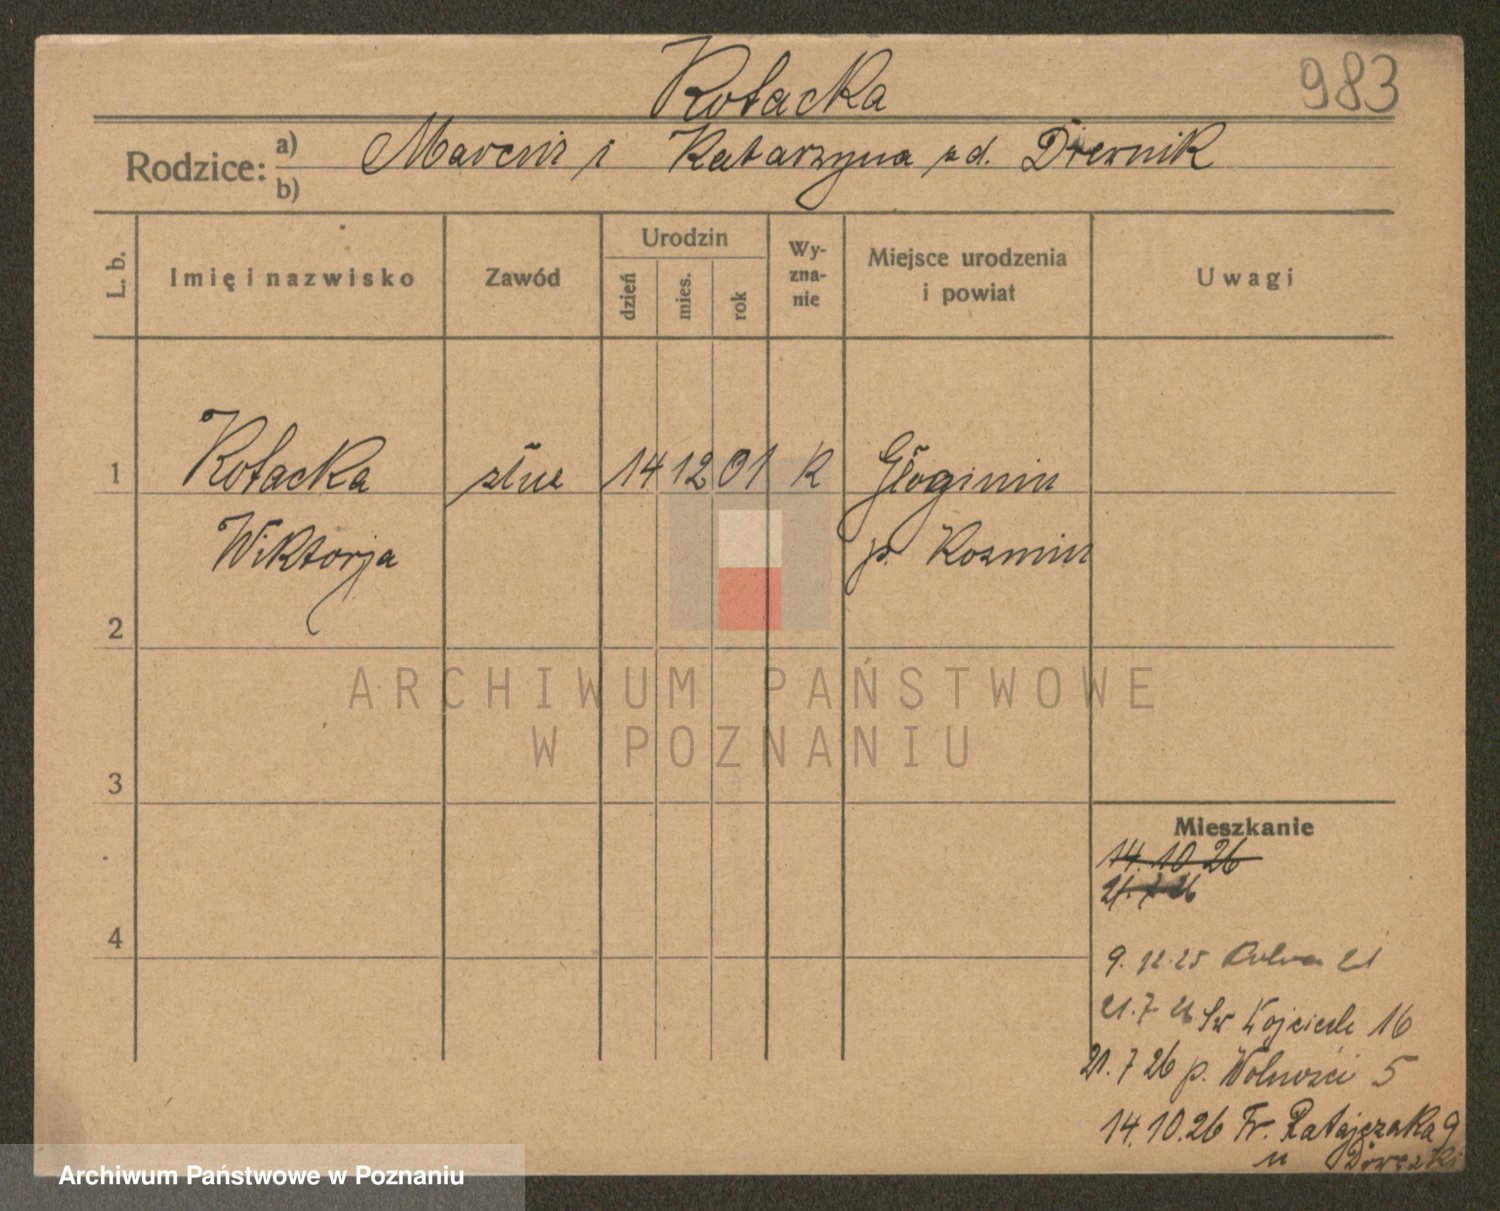 Kołacka
983
Rodzice: a) Marcin i Katarzyna zd. Diernik
b)
L. b. Imię i nazwisko Zawód Urodzin dzień mies. rok Wy-zna-nie Miejsce urodzenia i powiat Uwagi
1 Kołacka służ 14 12 01 K Głoginin
Wiktorja p. Kozmin
2
ARCHIWUM PAŃSTWOWE
W POZNANIU
3
Mieszkanie
14.10.26
21.7.26
4
9.12.25 21
21.7.26 Św Wojciech 16
21.7.26 p. Wolności 5
14.10.26 Fr. Ratajczaka 9
u
Archiwum Państwowe w Poznaniu